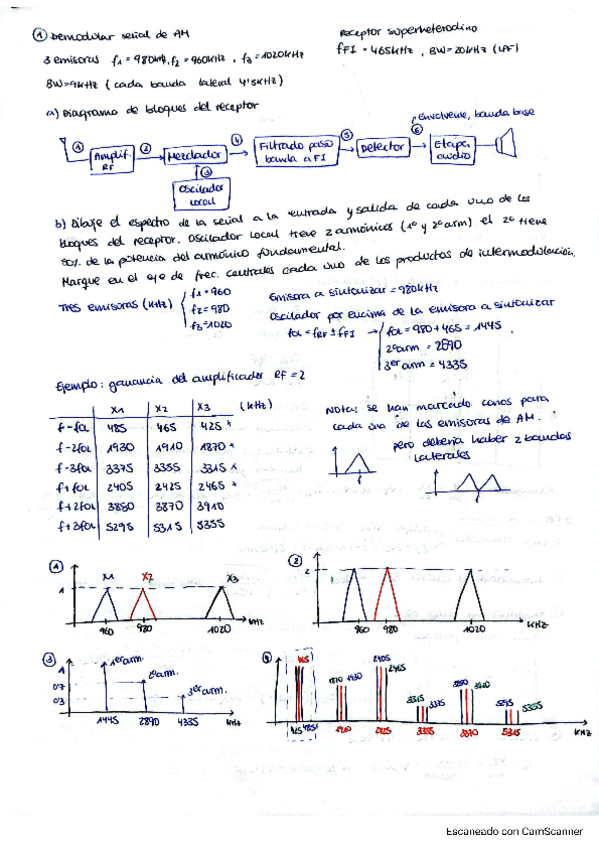 ① Demodular señal de AM
Receptor superheterodino
3 emisoras f1=980kHz, f2=960kHz, f3=1020kHz
fFI=465kHz, BW=20kHz (LAF)
BW=9kHz (cada banda lateral 4'5kHz)
a) Diagrama de bloques del receptor
Envolvente, banda base
① Amplif. RF ② Mezclador ④ Filtrado paso banda a FI ⑤ Detector ⑥ Etapa audio
③
Oscilador Local
b) Dibuje el espectro de la señal a la entrada y salida de cada uno de los
bloques del receptor. Oscilador Local tiene 2 armónicos (1º y 2º arm) el 2º tiene
50% de la potencia del armónico fundamental.
Marque en el eje de frec. centrales cada uno de los productos de intermodulación.
Tres emisoras (kHz) f1=960
f2=980
f3=1020
Emisora a sintonizar=980kHz
Oscilador por encima de la emisora a sintonizar
foL=fRF±fFI → foL=980+465=1445
2ºarm=2890
3er arm=4335
Ejemplo: ganancia del amplificador RF=2
X1 X2 X3 (kHz)
f-foL 485 465 425 *
f-2foL 1930 1910 1870 *
f-3foL 3375 3355 3315 *
f+foL 2405 2425 2465 *
f+2foL 3850 3870 3910
f+3foL 5295 5315 5355
Nota: se han marcado conos para
cada una de las emisoras de AM.
Pero debería haber 2 bandas
laterales
①
X1 X2 X3
1
960 980 1020 kHz
②
2
960 980 1020 kHz
③
1 1er arm.
0'7 2ºarm.
0'3 3er arm.
1445 2890 4335 kHz
④
465 1870 1930 2405 2465 3315 3375 3910 5355
465 485 1910 2425 3355 3870 5315 kHz
Escaneado con CamScanner